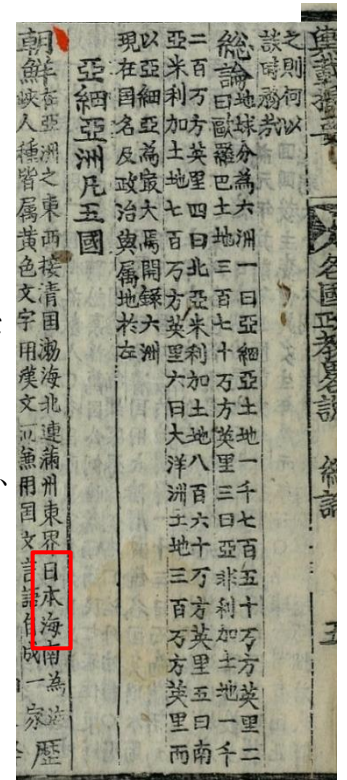 輿載撮要
各國政教畧說 總論 五
之則何以
談時務哉
總論
地球分為六洲一曰亞細亞土地一千七百五十万方英里二
曰歐羅巴土地三百七十万方英里三曰亞非利加土地一千
二百万方英里四曰北亞米利加土地八百六十万方英里五曰南
亞米利加土地七百万方英里六曰大洋洲土地三百万方英里而
以亞細亞為最大焉開錄六洲
現在国名及政治與属地於左
亞細亞洲凡五國
朝鮮
在亞洲之東西接清国渤海北連滿州東界日本海南為海
峽人種皆属黄色文字用漢文而兼用国文言語自成一家歷